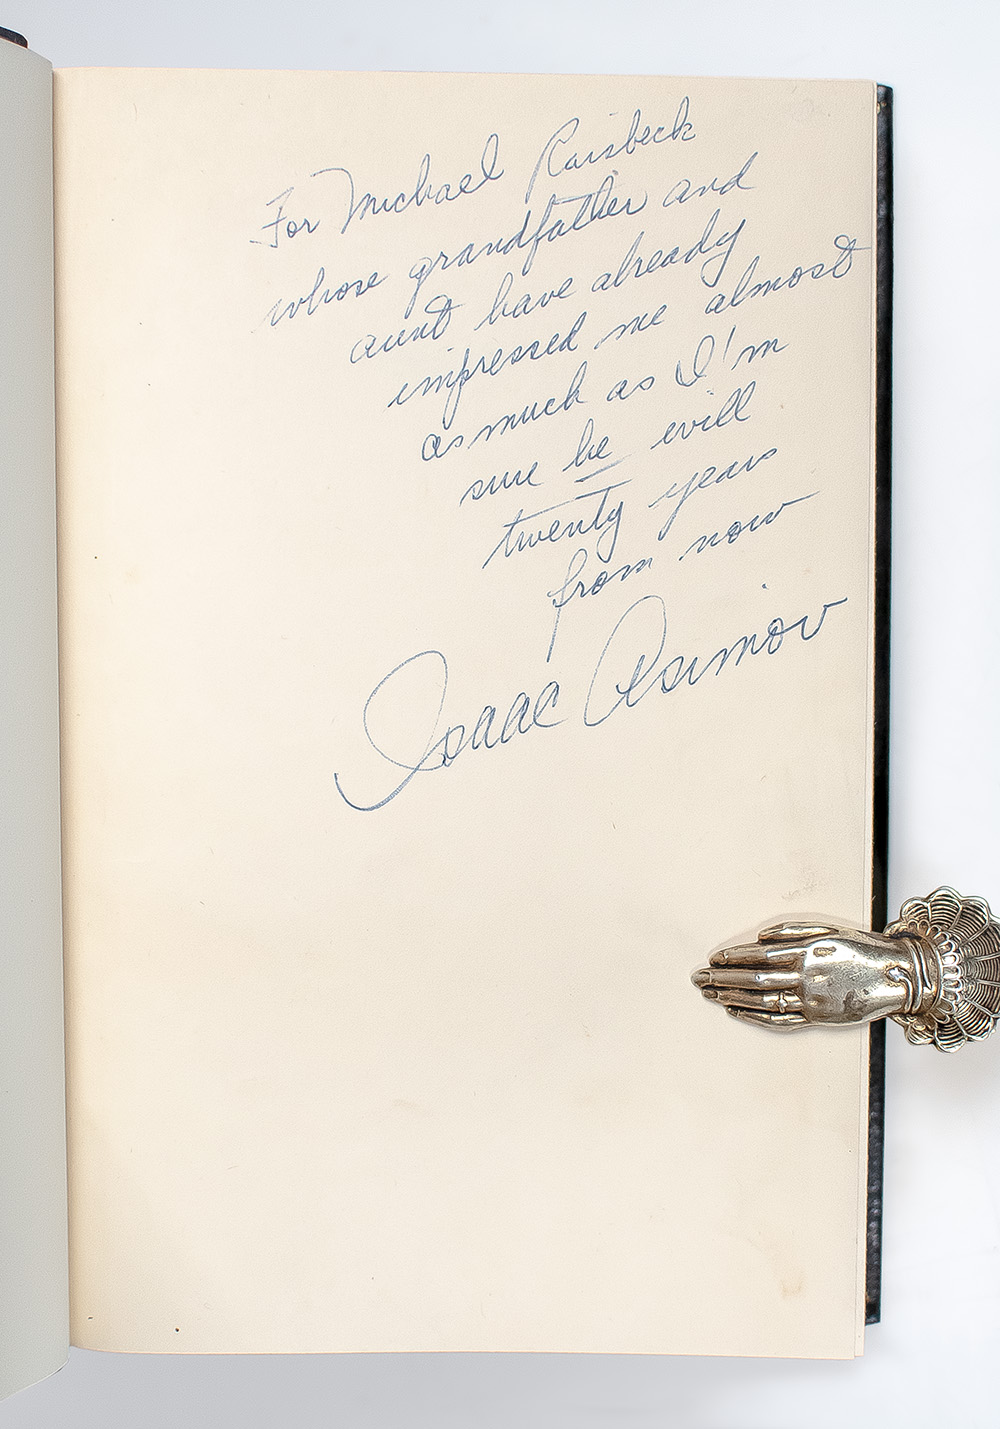 For Michael Raisbeck
whose grandfather and
aunt have already
impressed me almost
as much as I'm
sure he will
twenty years
from now
Isaac Asimov